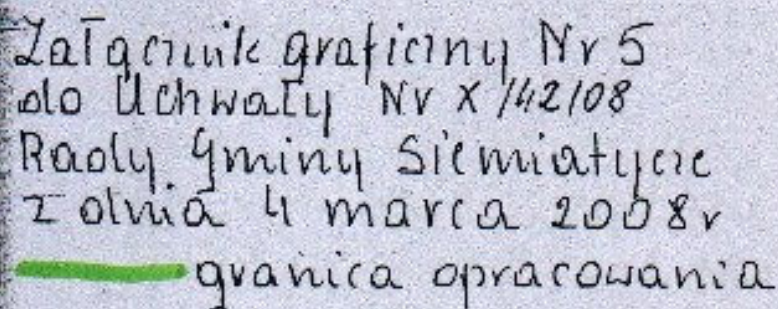 Załącznik graficzny Nr 5
do Uchwały Nr X/42/08
Rady Gminy Siemiatycze
z dnia 4 marca 2008r
granica opracowania